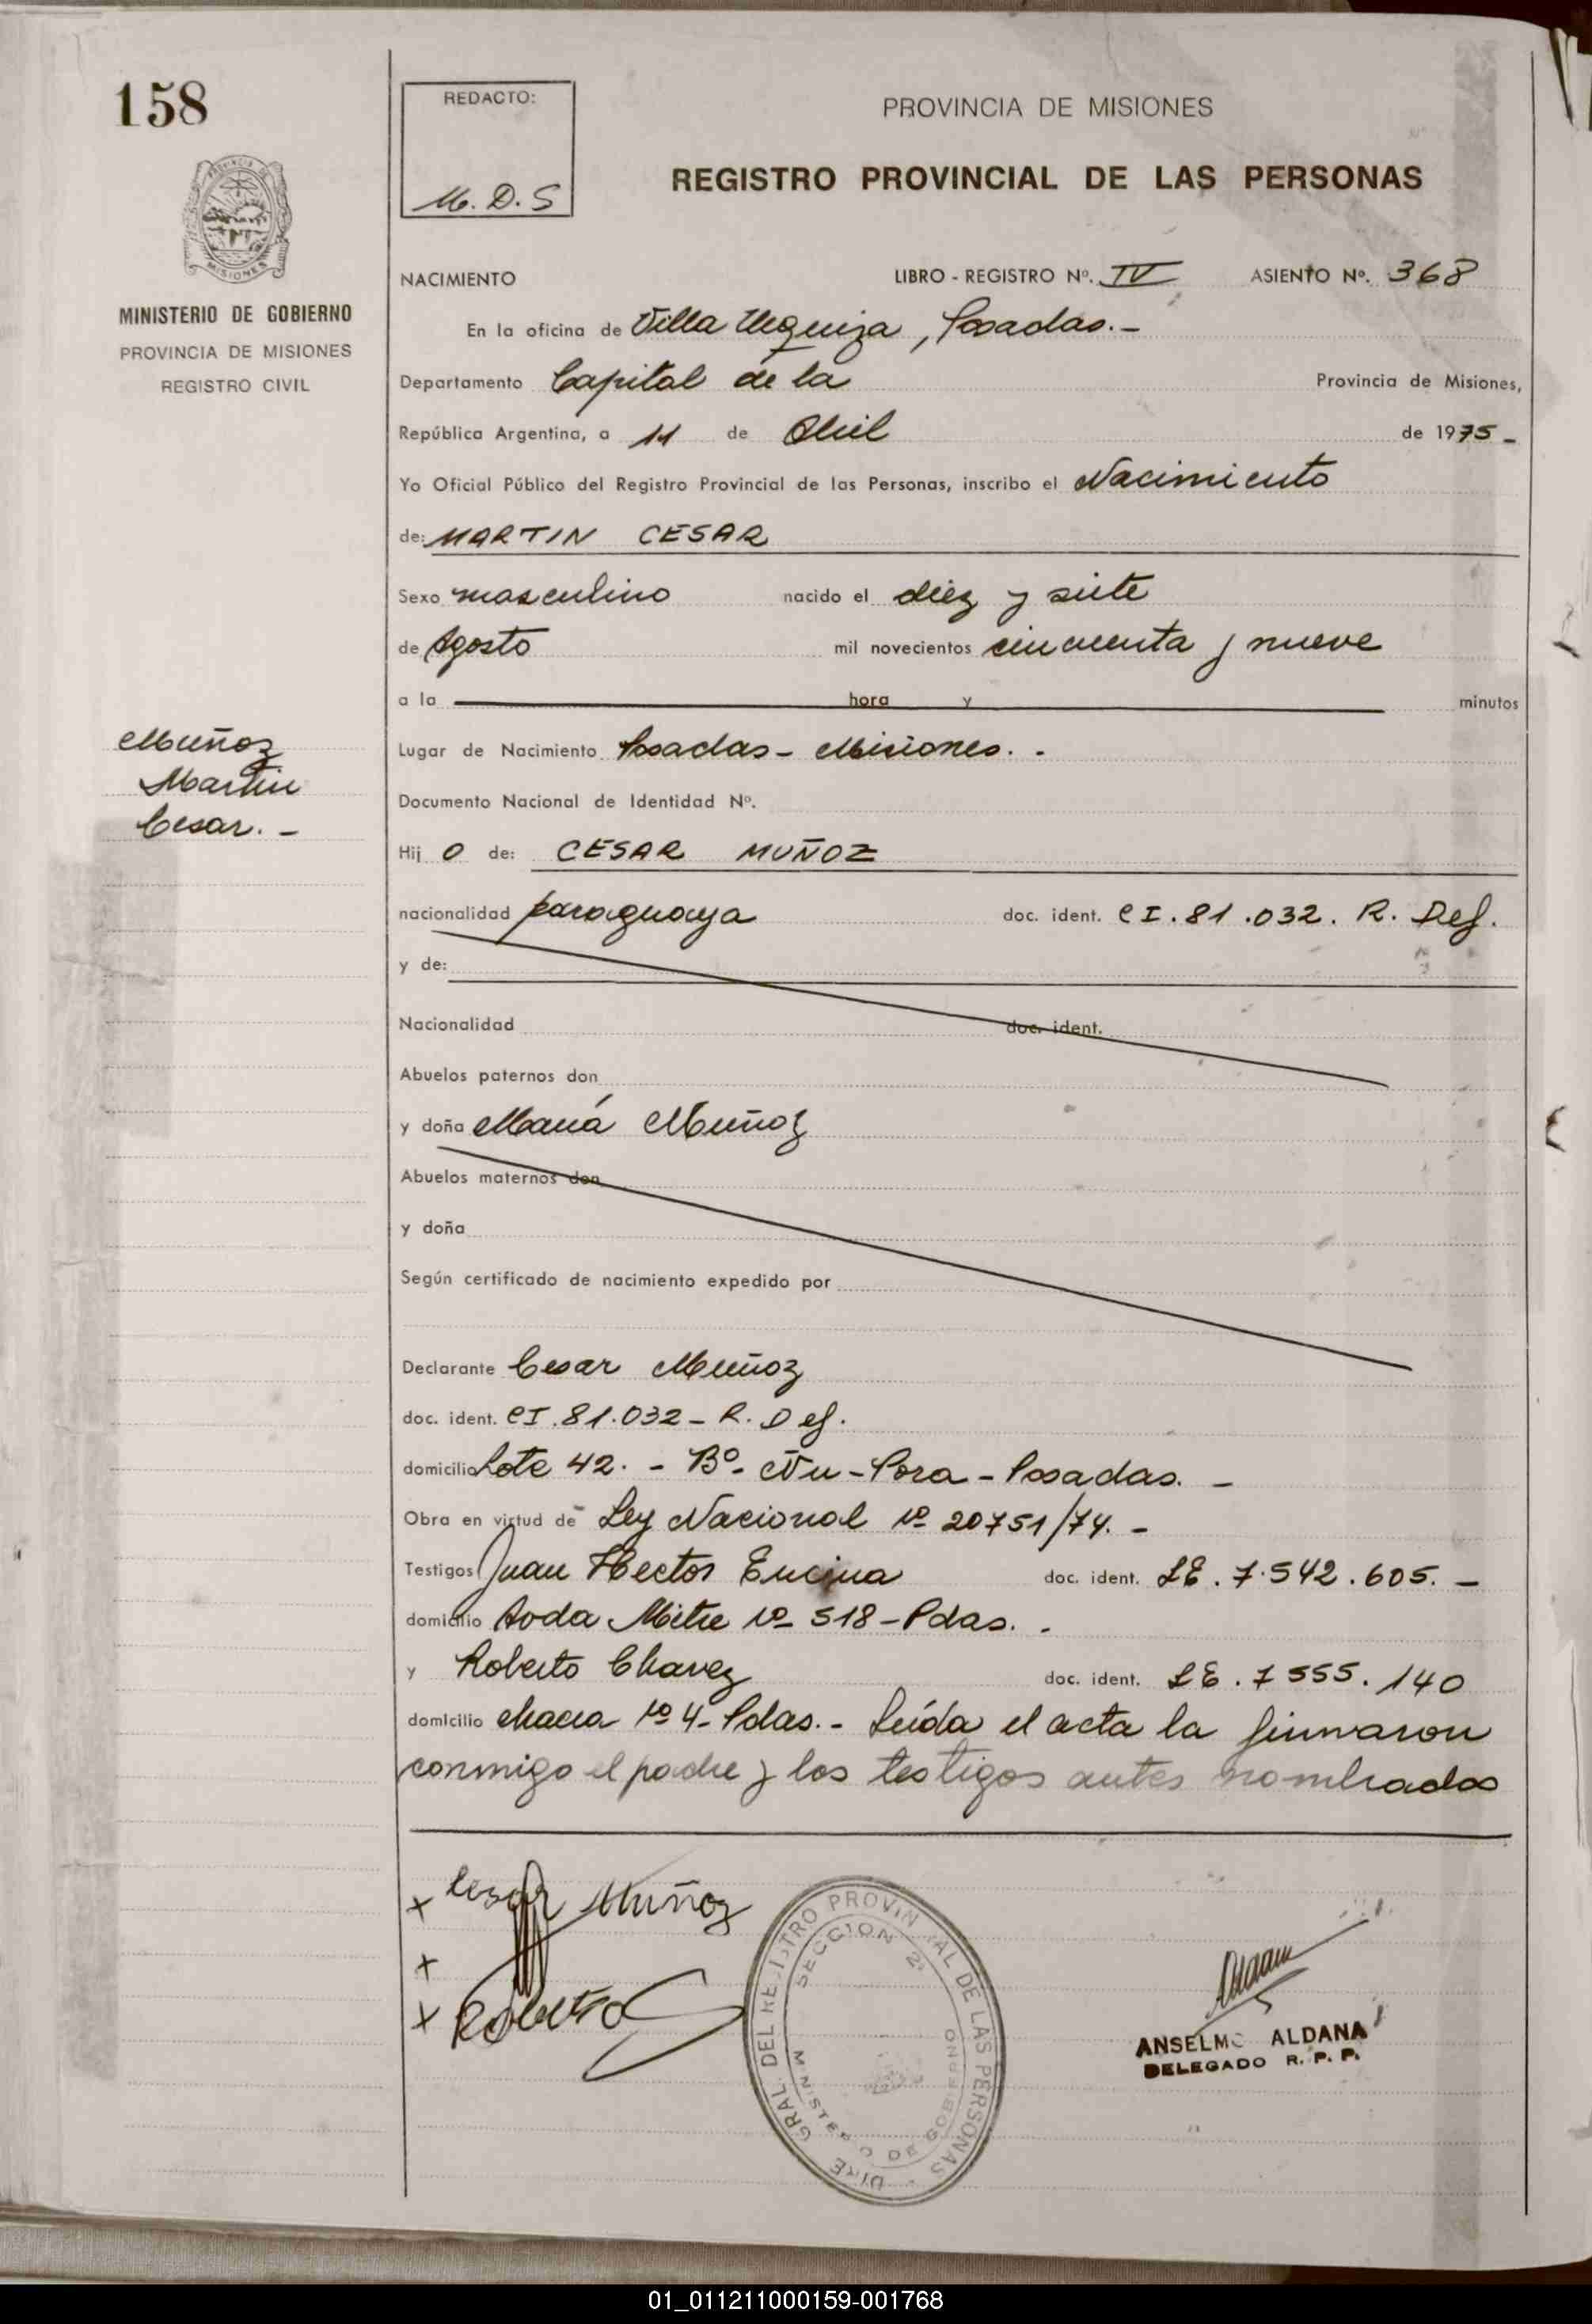 158
REDACTO:
M. D. S
PROVINCIA DE MISIONES
REGISTRO PROVINCIAL DE LAS PERSONAS
PROVINCIA DE
MISIONES
MINISTERIO DE GOBIERNO
PROVINCIA DE MISIONES
REGISTRO CIVIL
NACIMIENTO LIBRO - REGISTRO Nº. IV ASIENTO Nº. 368
En la oficina de Villa Urquiza, Posadas.-
Departamento Capital de la Provincia de Misiones,
República Argentina, a 11 de Abril de 1975-
Yo Oficial Público del Registro Provincial de las Personas, inscribo el Nacimiento
de: MARTIN CESAR
Sexo masculino nacido el diez y siete
de Agosto mil novecientos cincuenta y nueve
a la hora y minutos
Muñoz
Martin
Cesar.-
Lugar de Nacimiento Posadas- Misiones. -
Documento Nacional de Identidad Nº.
Hij o de: CESAR MUÑOZ
nacionalidad paraguaya doc. ident. CI.81.032. R. Def.
y de:
Nacionalidad doc. ident.
Abuelos paternos don
y doña María Muñoz
Abuelos maternos don
y doña
Según certificado de nacimiento expedido por
Declarante Cesar Muñoz
doc. ident. CI.81.032- R. Def.
domicilio Lote 42. - Bº- Ñu-Pora-Posadas. -
Obra en virtud de Ley Nacional Nº 20751/74. -
Testigos Juan Hector Encina doc. ident. LE. 7.542.605. -
domicilio Avda Mitre Nº 518-Pdas. -
y Roberto Chavez doc. ident. LE. 7555.140
domicilio chacra Nº 4- Pdas.- Leída el acta la firmaron
conmigo el padre y los testigos antes nombrados
x Cesar Muñoz
x
x Roberto
DIRE GRAL. DEL REGISTRO PROVIN IAL DE LAS PERSONAS
SECCION 2ª
MINISTERIO DE GOBIERNO
ANSELMO ALDANA
DELEGADO R. P. P.
01_011211000159-001768